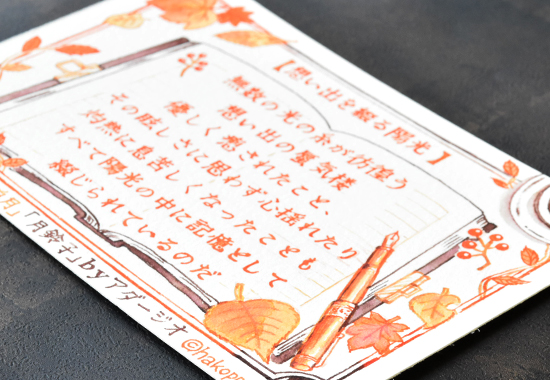 【想い出を綴る陽光】
無数の光の糸が彷徨う
想い出の蜃気楼
優しく癒されたこと、
その眩しさに思わず心揺れたり
灼熱に息苦しくなったことも
すべて陽光の中に記憶として
綴じられているのだ
月「月鈴子」byアダージオ
©hakopp